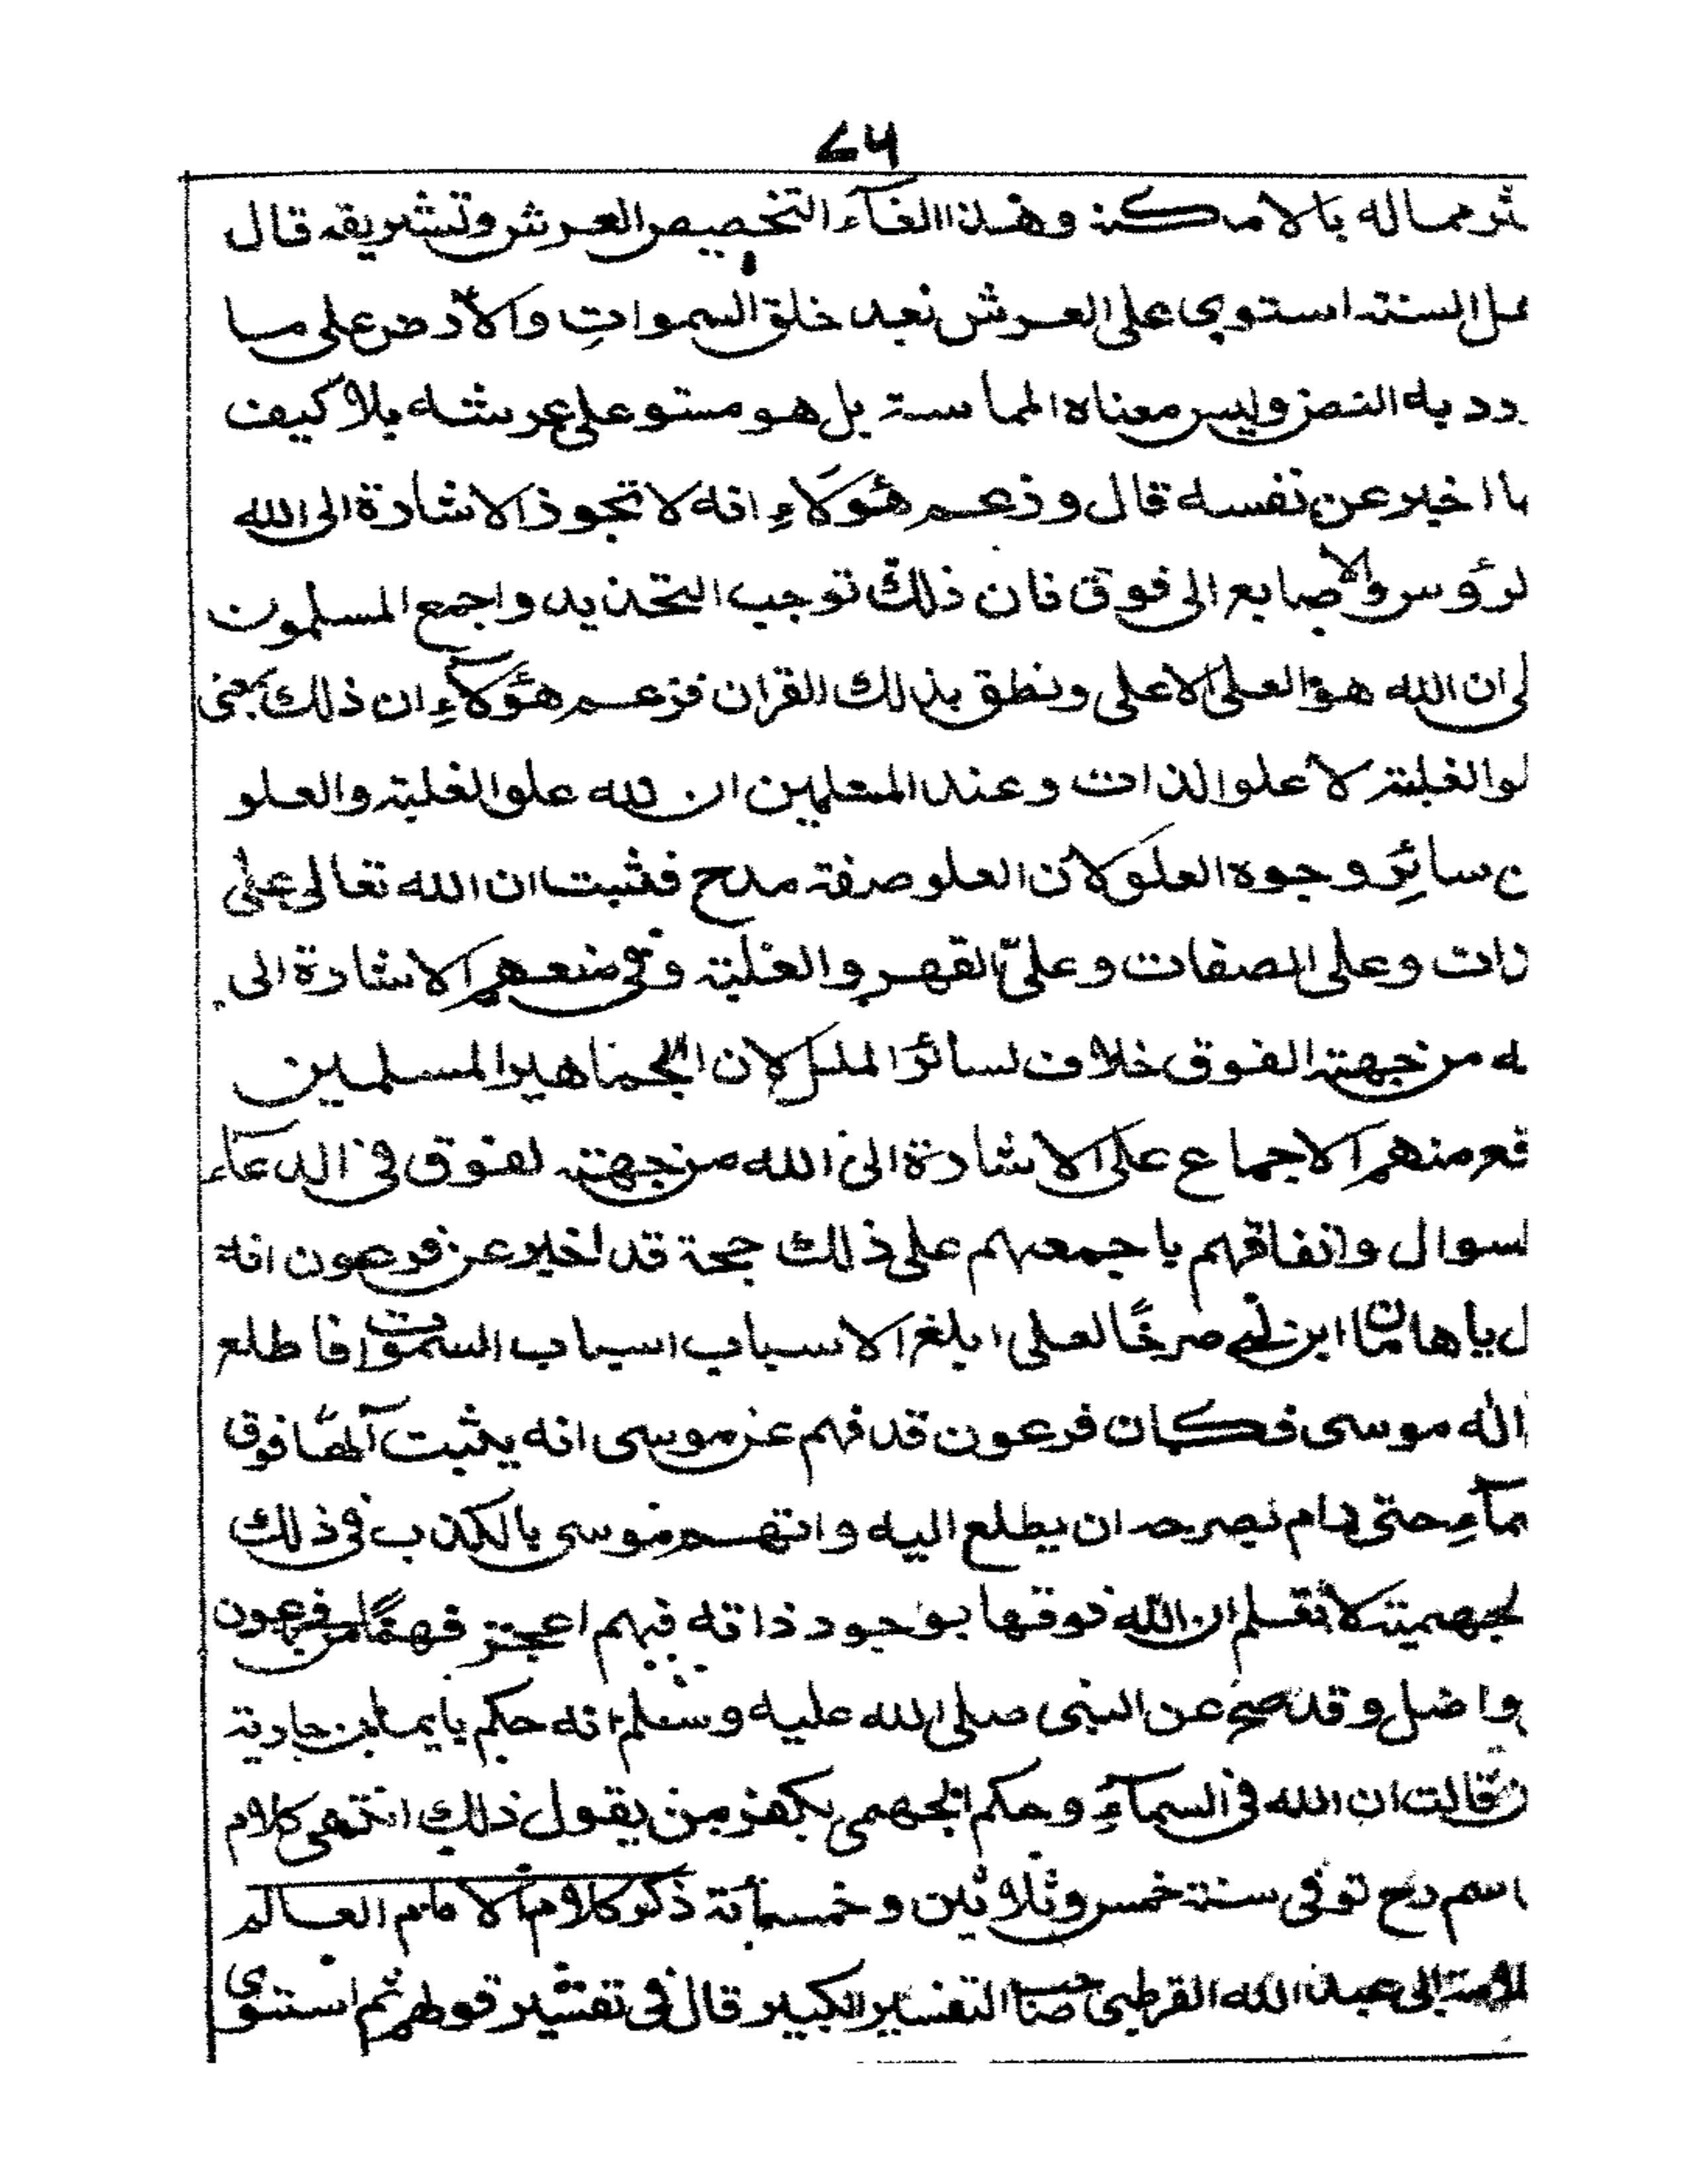 ۷۶
ثر مماله بالامكنة وهذا الغآء التخصيص العرش وتشريفه قال
هل السنة استوى على العرش بعد خلق السموات والارض على ما
ورد به النص وليس معناه المماسة بل هو مستو على عرشه بلا كيف
ما اخبر عن نفسه قال وزعم هؤلاء انه لا تجوز الاشارة الى الله
لرؤوس والاصابع الى فوق فان ذلك توجب التحديد واجمع المسلمون
لى ان الله هو العلى الاعلى ونطق بذلك القران فزعم هؤلآء ان ذلك بمعنى
لو الغلبة لا علو الذات وعند المسلمين ان لله علو الغلبة والعلو
ن سائر وجوه العلو لان العلو صفة مدح فثبت ان الله تعالى على
ذات وعلى الصفات وعلى القهر والغلبة وفى منعهم الاشارة الى
له من جهة الفوق خلاف لسائر الملل لان الجماهير المسلمين
قع منهم الاجماع على الاشارة الى الله من جهة لفوق فى الدعآء
لسوال واتفاقهم باجمعهم على ذلك حجة قد اخبر عن فرعون انه
ل يا هامان ابن لى صرحًا لعلى ابلغ الاسباب اسباب السموات فاطلع
اله موسى فكان فرعون قد فهم عن موسى انه يثبت آلهًا فوق
مآء حتى رام بصرحه ان يطلع اليه واتهم موسى بالكذب فى ذلك
لجهمية لا تعلم ان الله فوقها بوجود ذاته فهم اعجز فهمًا من فرعون
واضل وقد صح عن النبى صلى الله عليه وسلم انه حكم بايمان جارية
ن قالت ان الله فى السمآء وحكم الجهمى بكفر من يقول ذلك انتهى كلام
اسم رح توفى سنة خمس وثلاثين وخمسمائة ذكر كلام الامام العالم
ابى عبد الله القرطبى صاحب التفسير الكبير قال فى تفسير قوله ثم استوى